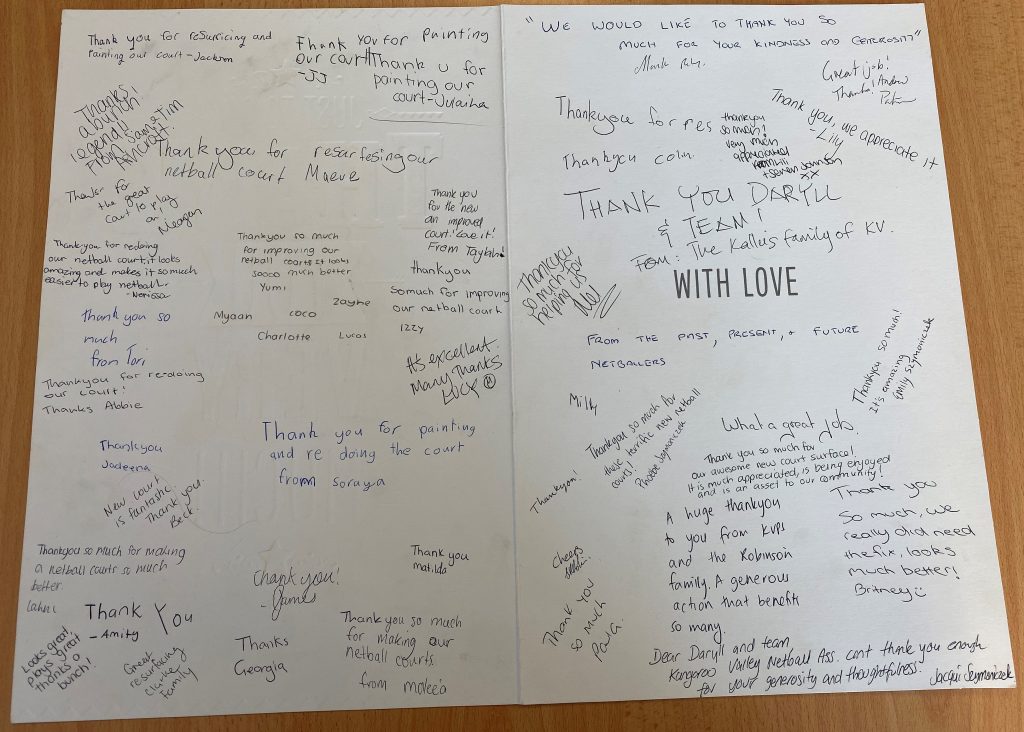 Thank you for resuricing and
Painting our court - Jackson
Thank you for painting
our court
- JJ
Thank u for
painting our
court - Juraiha
Thanks
a bunch!
legends!
From Siam & Tim
Ancraft.
Thank you for resurfesing our
netball court Maeve
Thanks for
the great
court to play
on!
Neagan
Thank you
for the new
an improved
court! Love it!
From Taylah!
Thankyou for redoing
our netball court, it looks
amazing and makes it so much
easier to play netball.
- Nerissa
Thank you so much
for improving our
netball courts it looks
soooo much better
Yumi
Zayne
Myaan
coco
Charlotte
Lucas
thankyou
so much for improving
our netball court
Izzy
Thank you so
much
from Tori
Thankyou for re-doing
our court!
Thanks Abbie
It's excellent.
Many Thanks
Lucy
Thank you for painting
and re doing the court
from soraya
Thankyou
Jadeena
New court
is fantastic.
Thank you.
Beck.
Thankyou so much for making
a netball courts so much
better.
Lahni
Thank You
- Amity
Chank you!
- James
Thank you
matilda
Looks great,
plays great
thanks a
bunch!
Great
resurfacing
Clarke
Family
Thanks
Georgia
Thank you so much
for making our
netball courts
from maleea
"WE WOULD LIKE TO THANK YOU SO
MUCH FOR YOUR KINDNESS AND GENEROSITY"
Mark
Great job!
Thanks! Andrew
Thankyou for
thankyou
so much!
very much
appreciated
Thank you, we appreciate it
- Lily
Thankyou Colin.
THANK YOU DARYLL
& TEAM!
From: The Kalleis family of KV.
Thankyou
so much for
helping us
WITH LOVE
FROM THE PAST, PRESENT, + FUTURE
NETBALLERS
Thankyou so much!
It's amazing
Emily Szymoniczek
Milly
Thankyou so much for
these terrific new netball
courts!
Phoebe Szymoniczek
What a great job.
Thankyou!
Thank you so much for
our awesome new court surface!
It is much appreciated, is being enjoyed
and is an asset to our community!
A huge thankyou
to you from KVPS
and the Robinson
family. A generous
action that benefits
so many
Thank you
so much, we
really did need
the fix, looks
much better!
Britney
Cheers
Thank you
so much
Paula.
Dear Daryll and team,
Kangaroo Valley Netball Ass. cant thank you enough
for your generosity and thoughtfulness.
Jacqui Szymoniczek